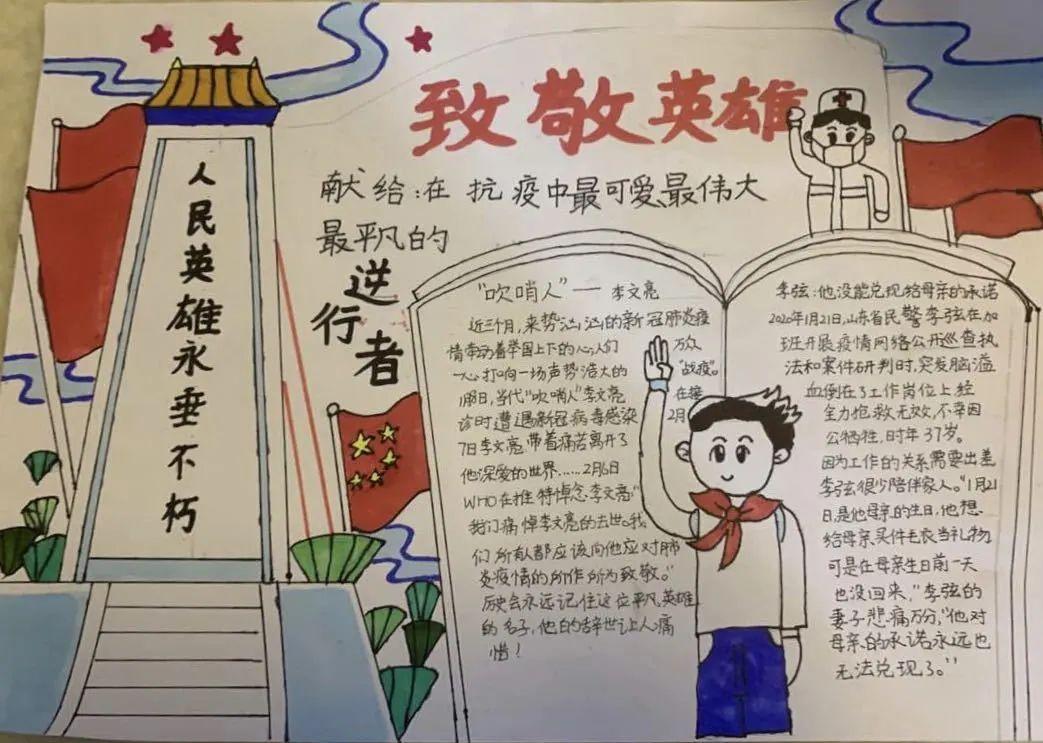 致敬英雄
献给:在抗疫中最可爱、最伟大
最平凡的
逆
行
者
人民英雄永垂不朽
“吹哨人”——李文亮
近三个月,来势汹汹的新冠肺炎疫
情牵动着举国上下的心,人们 万众
一心,打响一场声势浩大的 “战疫”。
1月8日,当代“吹哨人”李文亮 在接
诊时遭遇新冠病毒感染 2月
7日李文亮带着痛苦离开了
他深爱的世界……2月6日
WHO在推特悼念李文亮:“
我们痛悼李文亮的去世。我
们所有人都应该向他应对肺
炎疫情的所作所为致敬。”
历史会永远记住这位平凡英雄
的名子,他的辞世让人痛
惜!
李弦:他没能兑现给母亲的承诺
2020年1月21日,山东省民警李弦在加
班开展疫情网络公开巡查执
法和案件研判时,突发脑溢
血倒在了工作岗位上经
全力抢救无效,不幸因
公牺牲,时年37岁。
因为工作的关系需要出差
李弦很少陪伴家人。“1月21
日是他母亲的生日,他想
给母亲买件毛衣当礼物
可是在母亲生日前一天
也没回来,”李弦的
妻子悲痛万分,“他对
母亲的承诺永远也
无法兑现了。”